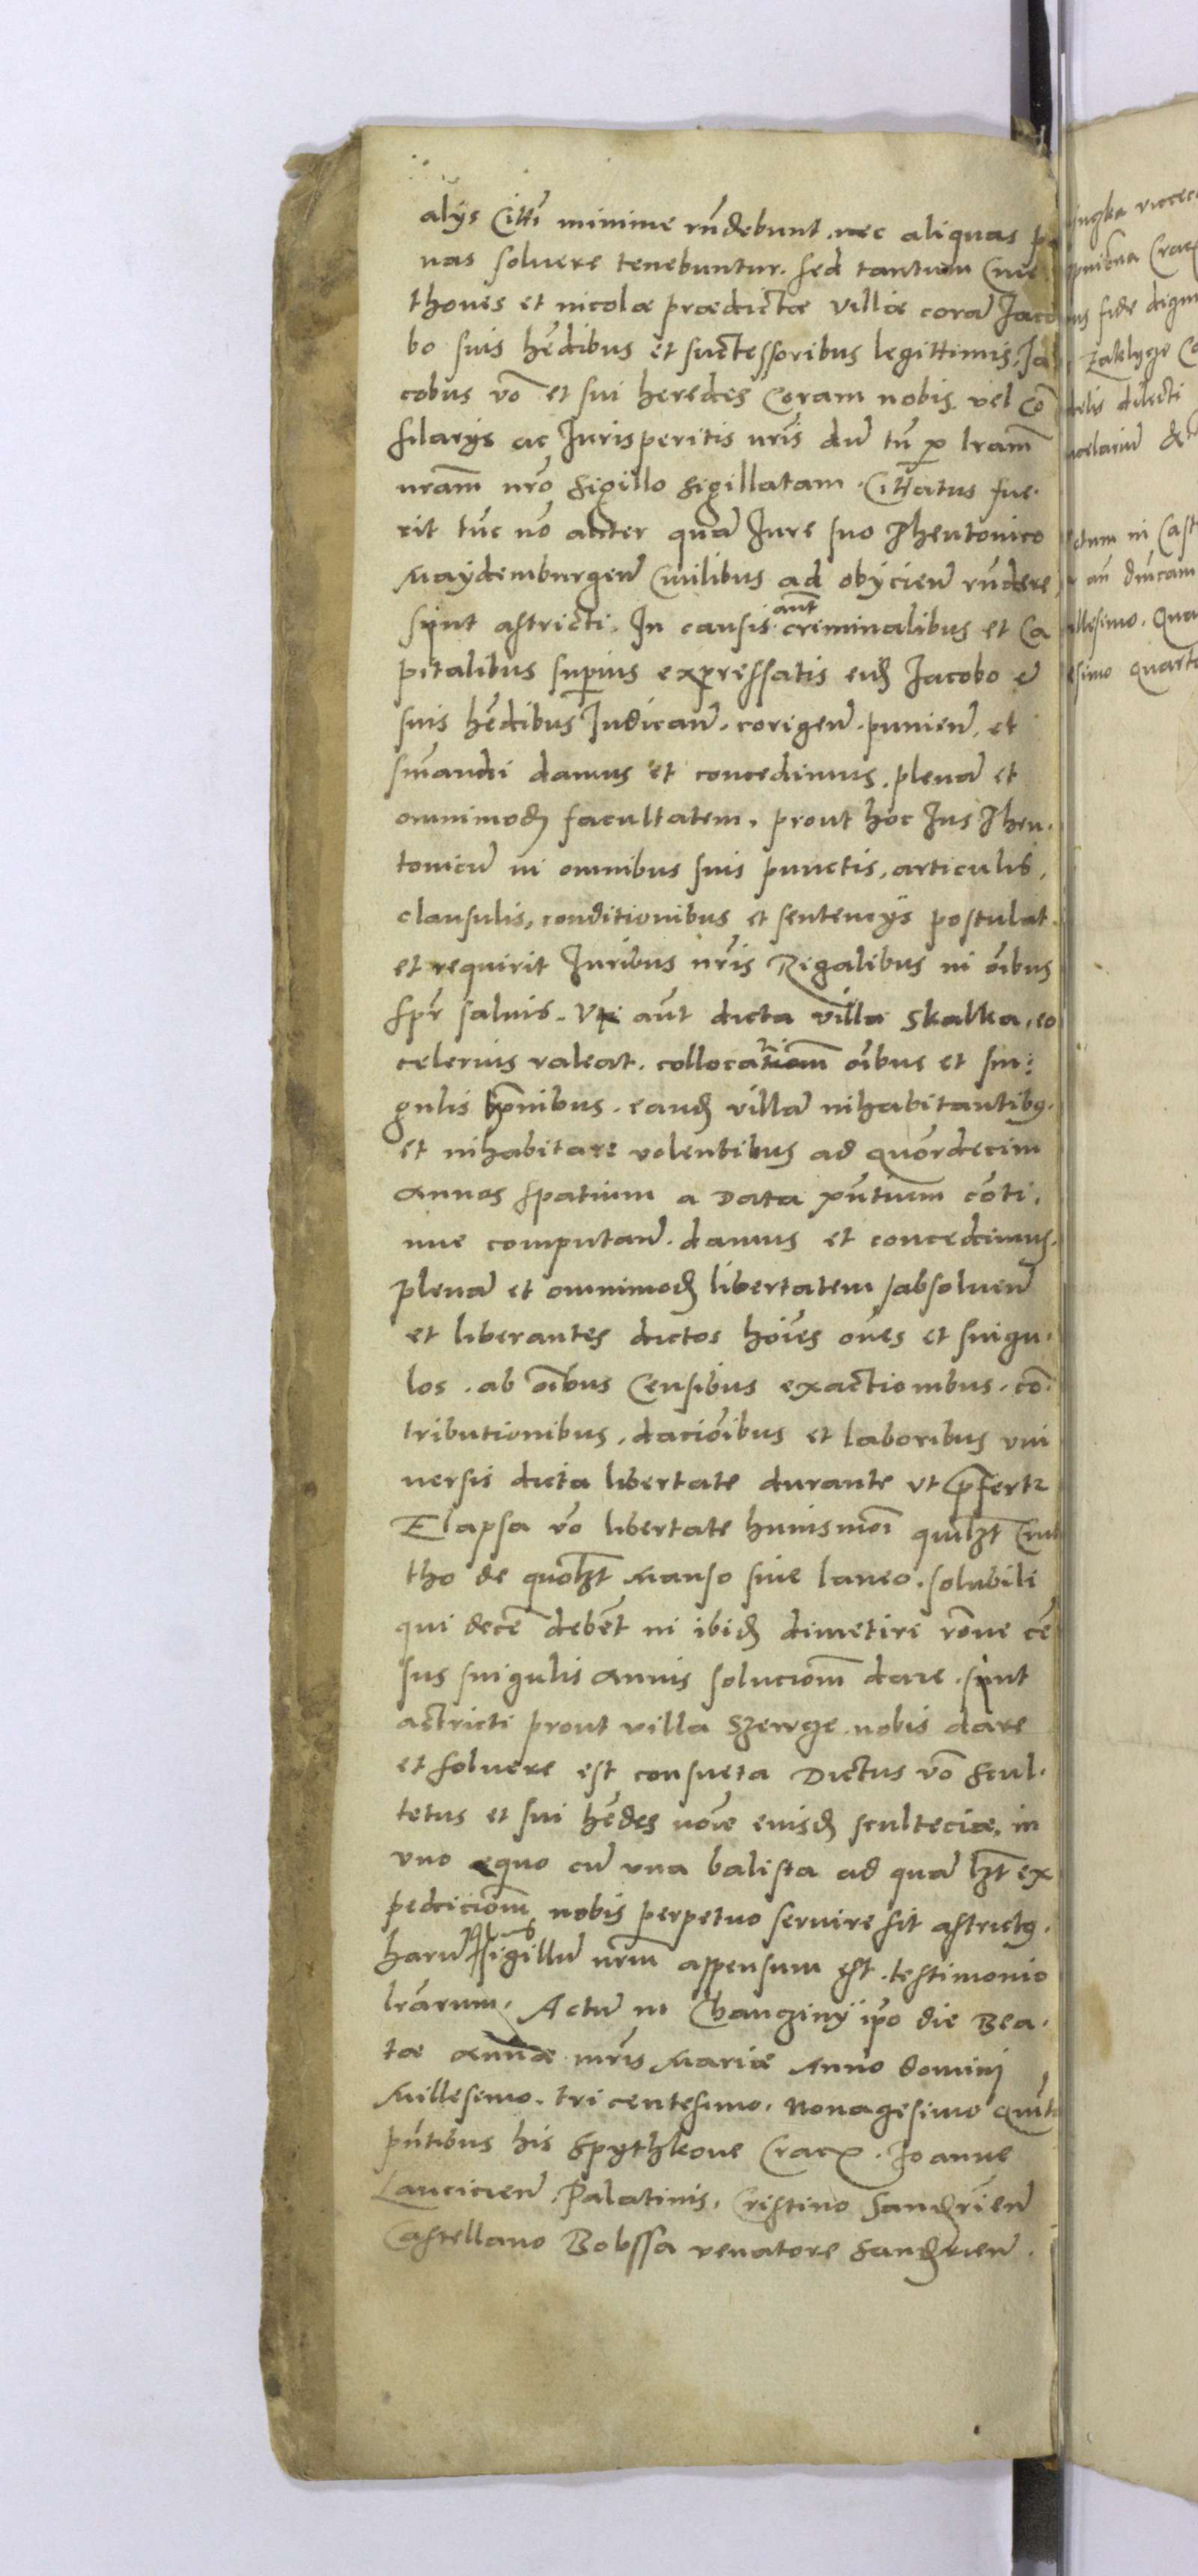 alijs Citti minime rñdebunt. nec aliquas pe
nas soluere tenebuntur. sed tantum Cme
thones et incolæ prædictæ villæ corã Jaco
bo suis hẽdibus et successoribus legittimis. Ja
cobus võ et sui heredes Coram nobis vel cõ
siliarijs ac Jurisperitis nr̃is dũ tñ p lr̃am
nr̃am nr̃o sigillo sigillatam. Cittatus fue-
rit tũc nõ aliter quã Jure suo Theutonico
Maydemburgeñ Cuilibus ad obijcieñ rñdere
sunt astricti. In causis aũt criminalibus et Ca
pitalibus supius expressatis eid Jacobo et
suis hẽdibus Judicañ. corigeñ. punieñ. et
sm̃andi damus et concedimus. plenã et
omnimod facultatem. prout hoc Jus Theu-
tonicũ in omnibus suis punctis, articulis,
clausulis, conditionibus et sentencijs postulat.
et requirit Juribus nr̃is Regalibus in oĩbus
spr̃ saluis. Vt aũt dicta villa Skalka, eo
celerius valeat. collocationẽm oĩbus et sin:
gulis hoĩnibus. eand villã inhabitantibus.
et inhabitare volentibus ad quõrdecim
Annos spatium a Data pñtium cõti-
nue computañ. damus et concedimus.
Plenã et omnimod libertatem absolueñ
et liberantes dictos hoĩes oẽs et singu-
los. ab oĩbus Censibus exactionibus. cõ
tributionibus, daciõibus et laboribus vni
uersis dicta libertate durante vt p̃fertr
Elapsa võ libertate huiusmõi quilzt Cme
tho de quolzt Manso siue laneo. solubili
qui decẽ debẽt in ibid dimetiri rõne cẽ
sus singulis Annis soluciõm dare. sunt
astricti prout villa Szewcze nobis dare
et soluere est consueta Dictus võ Scul-
tetus et sui hẽdes noĩe eiusd sculteciæ. in
vno equo cũ vna balista ad quã lzt ex
pediciõm nobis perpetuo seruire sit astrictus.
harũ sigillũ nr̃m appensum est. testimonio
lr̃arum. Actũ in Chanczinij ip̃o die Bea-
tæ Annæ mr̃is Mariæ Anno domini
Millesimo. tricentesimo. Nonagesimo Quĩto
pñtibus his Spythkone Crac. Joanne
Lancicieñ. Palatinis. Cristino Sandr̃ieñ
Castellano Bobssa venatore Sandr̃ieñ.